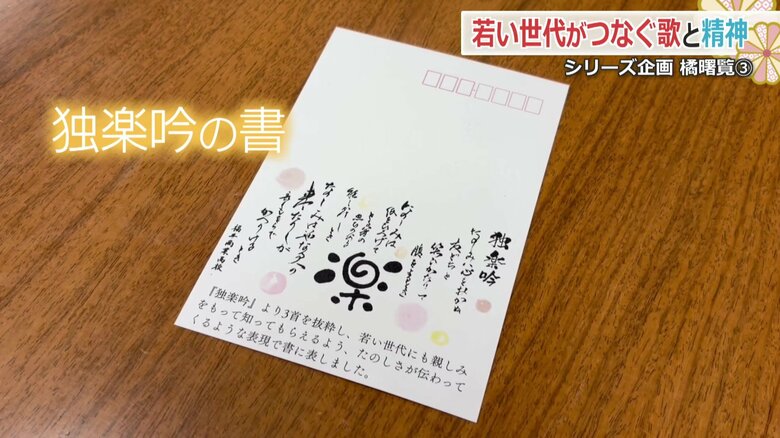 若い世代がつなぐ歌と精神
シリーズ企画 橘曙覧③
独楽吟の書
独楽吟
たのしみは心をおかぬ
友どちと
笑ひかたりて
腹をよるとき
たのしみは
紙をひろげて
とる筆の
思ひの外に
能くかけしとき
福井商業高校
楽
『独楽吟』より3首を抜粋し、若い世代にも親しみ
をもって知ってもらえるよう、たのしさが伝わって
くるような表現で書に表しました。